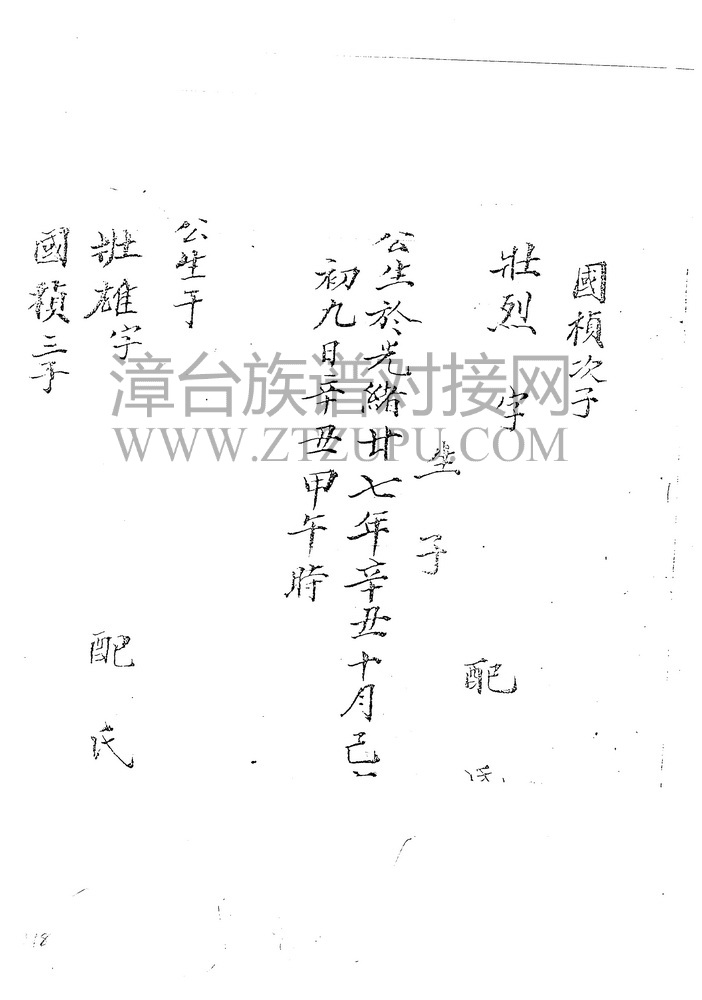 國楨次子
壯烈 字 配 氏
生 子
公生於光緒廿七年辛丑十月己
初九日辛丑甲午時
公生于
壯雄字 配 氏
國楨三子
漳台族谱对接网
WWW.ZTZUPU.COM
18